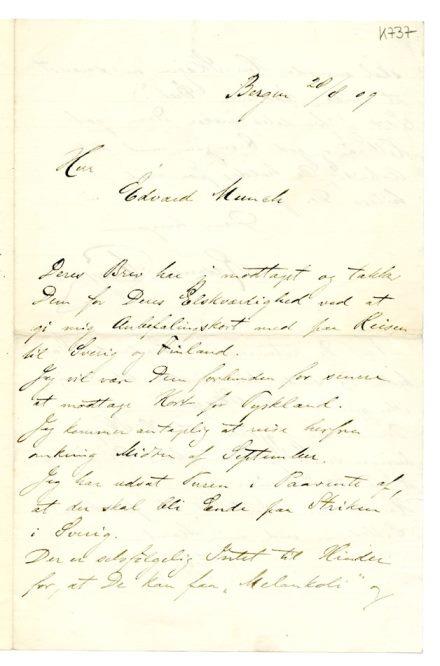 K737
Bergen 28/8 09
Herr
Edvard Munch
Deres Brev har j modtaget og takke
Dem for Deres Elskværdighed ved at
gi mig Anbefalingskort med paa Reisen
til Sverig og Finland.
Jeg vil vær Dem forbunden for senere
at modtage Kort for Tyskland.
Jeg kommer antagelig at reise herfra
omkring Midten af September.
Jeg har udsat Turen i Paavente af,
at der skal bli Ende paa Striken
i Sverig.
Der er selvfølgelig Intet til Hinder
for, at De kan faa „Melankoli" og